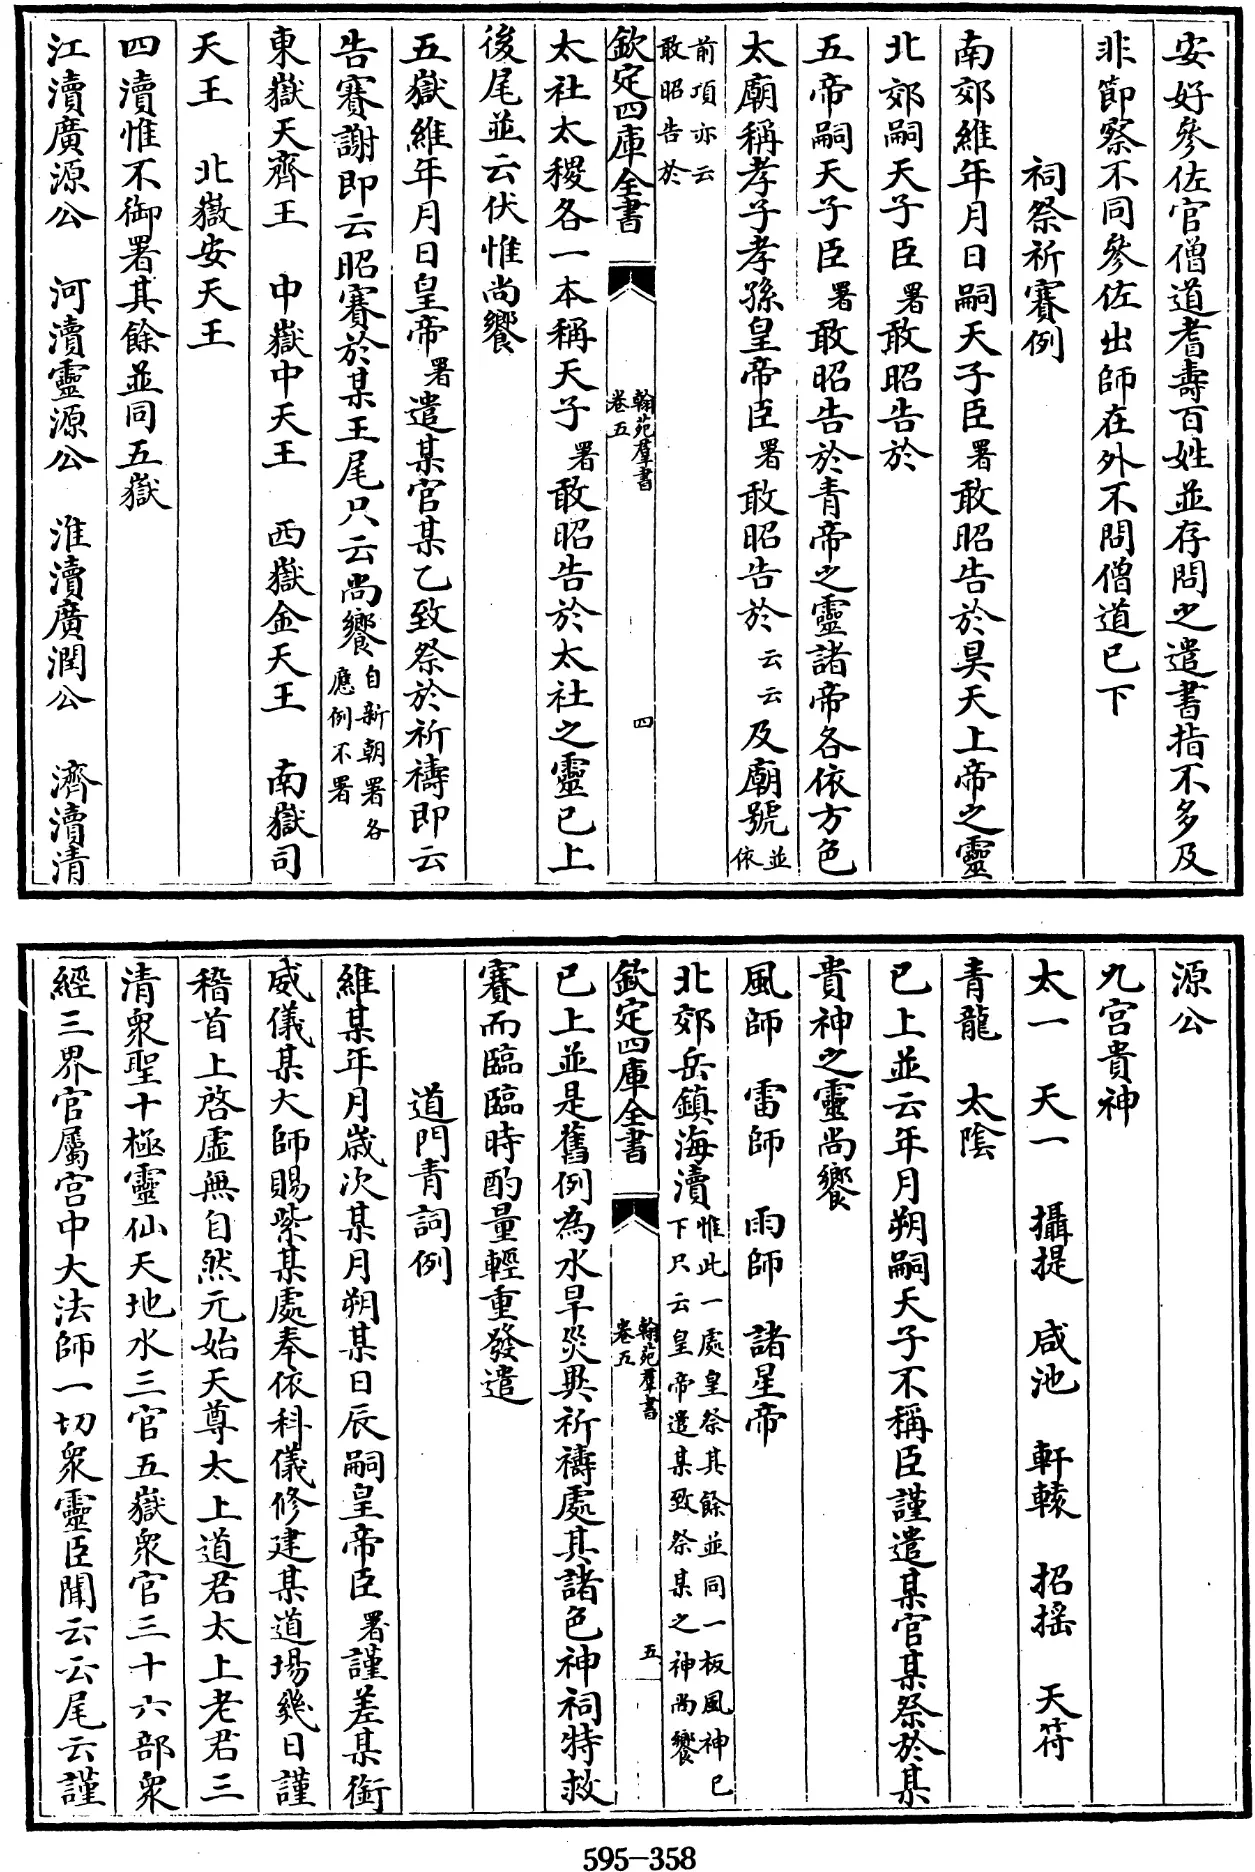 安好參佐官僧道耆壽百姓並存問之遣書指不多及
非節察不同參佐出師在外不問僧道已下
祠祭祈賽例
南郊維年月日嗣天子臣署敢昭告於昊天上帝之靈
北郊嗣天子臣署敢昭告於
五帝嗣天子臣署敢昭告於青帝之靈諸帝各依方色
太廟稱孝子孝孫皇帝臣署敢昭告於云云及廟號並依
前項亦云敢昭告於
欽定四庫全書 翰苑羣書卷五 四
太社太稷各一本稱天子署敢昭告於太社之靈已上
後尾並云伏惟尚饗
五嶽維年月日皇帝署遣某官某乙致祭於祈禱即云
告賽謝即云昭賽於某王尾只云尚饗自新朝署各應例不署
東嶽天齊王 中嶽中天王 西嶽金天王 南嶽司
天王 北嶽安天王
四瀆惟不御署其餘並同五嶽
江瀆廣源公 河瀆靈源公 淮瀆廣潤公 濟瀆清
源公
九宫貴神
太一 天一 攝提 咸池 軒轅 招摇 天符
青龍 太陰
已上並云年月朔嗣天子不稱臣謹遣某官某祭於某
貴神之靈尚饗
風師 雷師 雨師 諸星帝
北郊岳鎮海瀆惟此一處皇祭其餘並同一板風神已下只云皇帝遣某致祭某之神尚饗
欽定四庫全書 翰苑羣書卷五 五
已上並是舊例為水旱災異祈禱處其諸色神祠特救
賽而臨臨時酌量輕重發遣
道門青詞例
維某年月歲次某月朔某日辰嗣皇帝臣署謹差某銜
威儀某大師賜紫某處奉依科儀修建某道場幾日謹
稽首上啓虛無自然元始天尊太上道君太上老君三
清衆聖十極靈仙天地水三官五嶽衆官三十六部衆
經三界官屬宫中大法師一切衆靈臣聞云云尾云謹
595-358